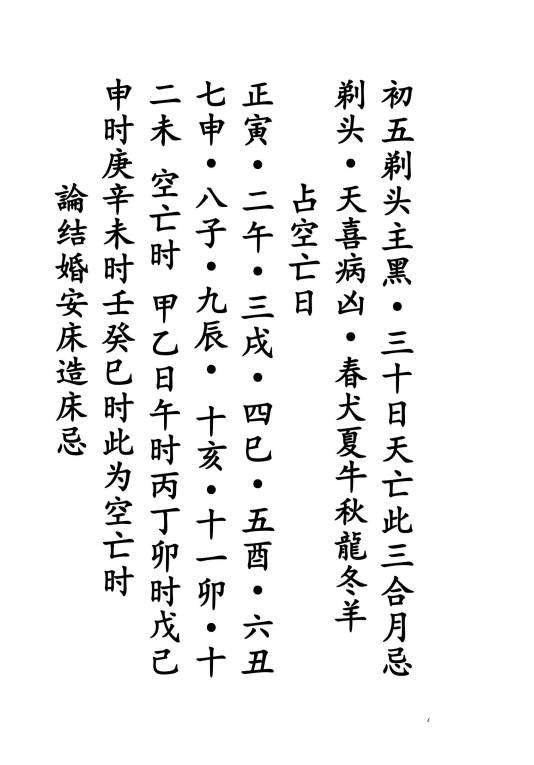 初五剃头主黑•三十日天亡此三合月忌
剃头•天喜病凶•春犬夏牛秋龍冬羊
占空亡日
正寅•二午•三戌•四巳•五酉•六丑
七申•八子•九辰•十亥•十一卯•十
二未 空亡时 甲乙日午时丙丁卯时戊己
申时庚辛未时壬癸巳时此为空亡时
論结婚安床造床忌